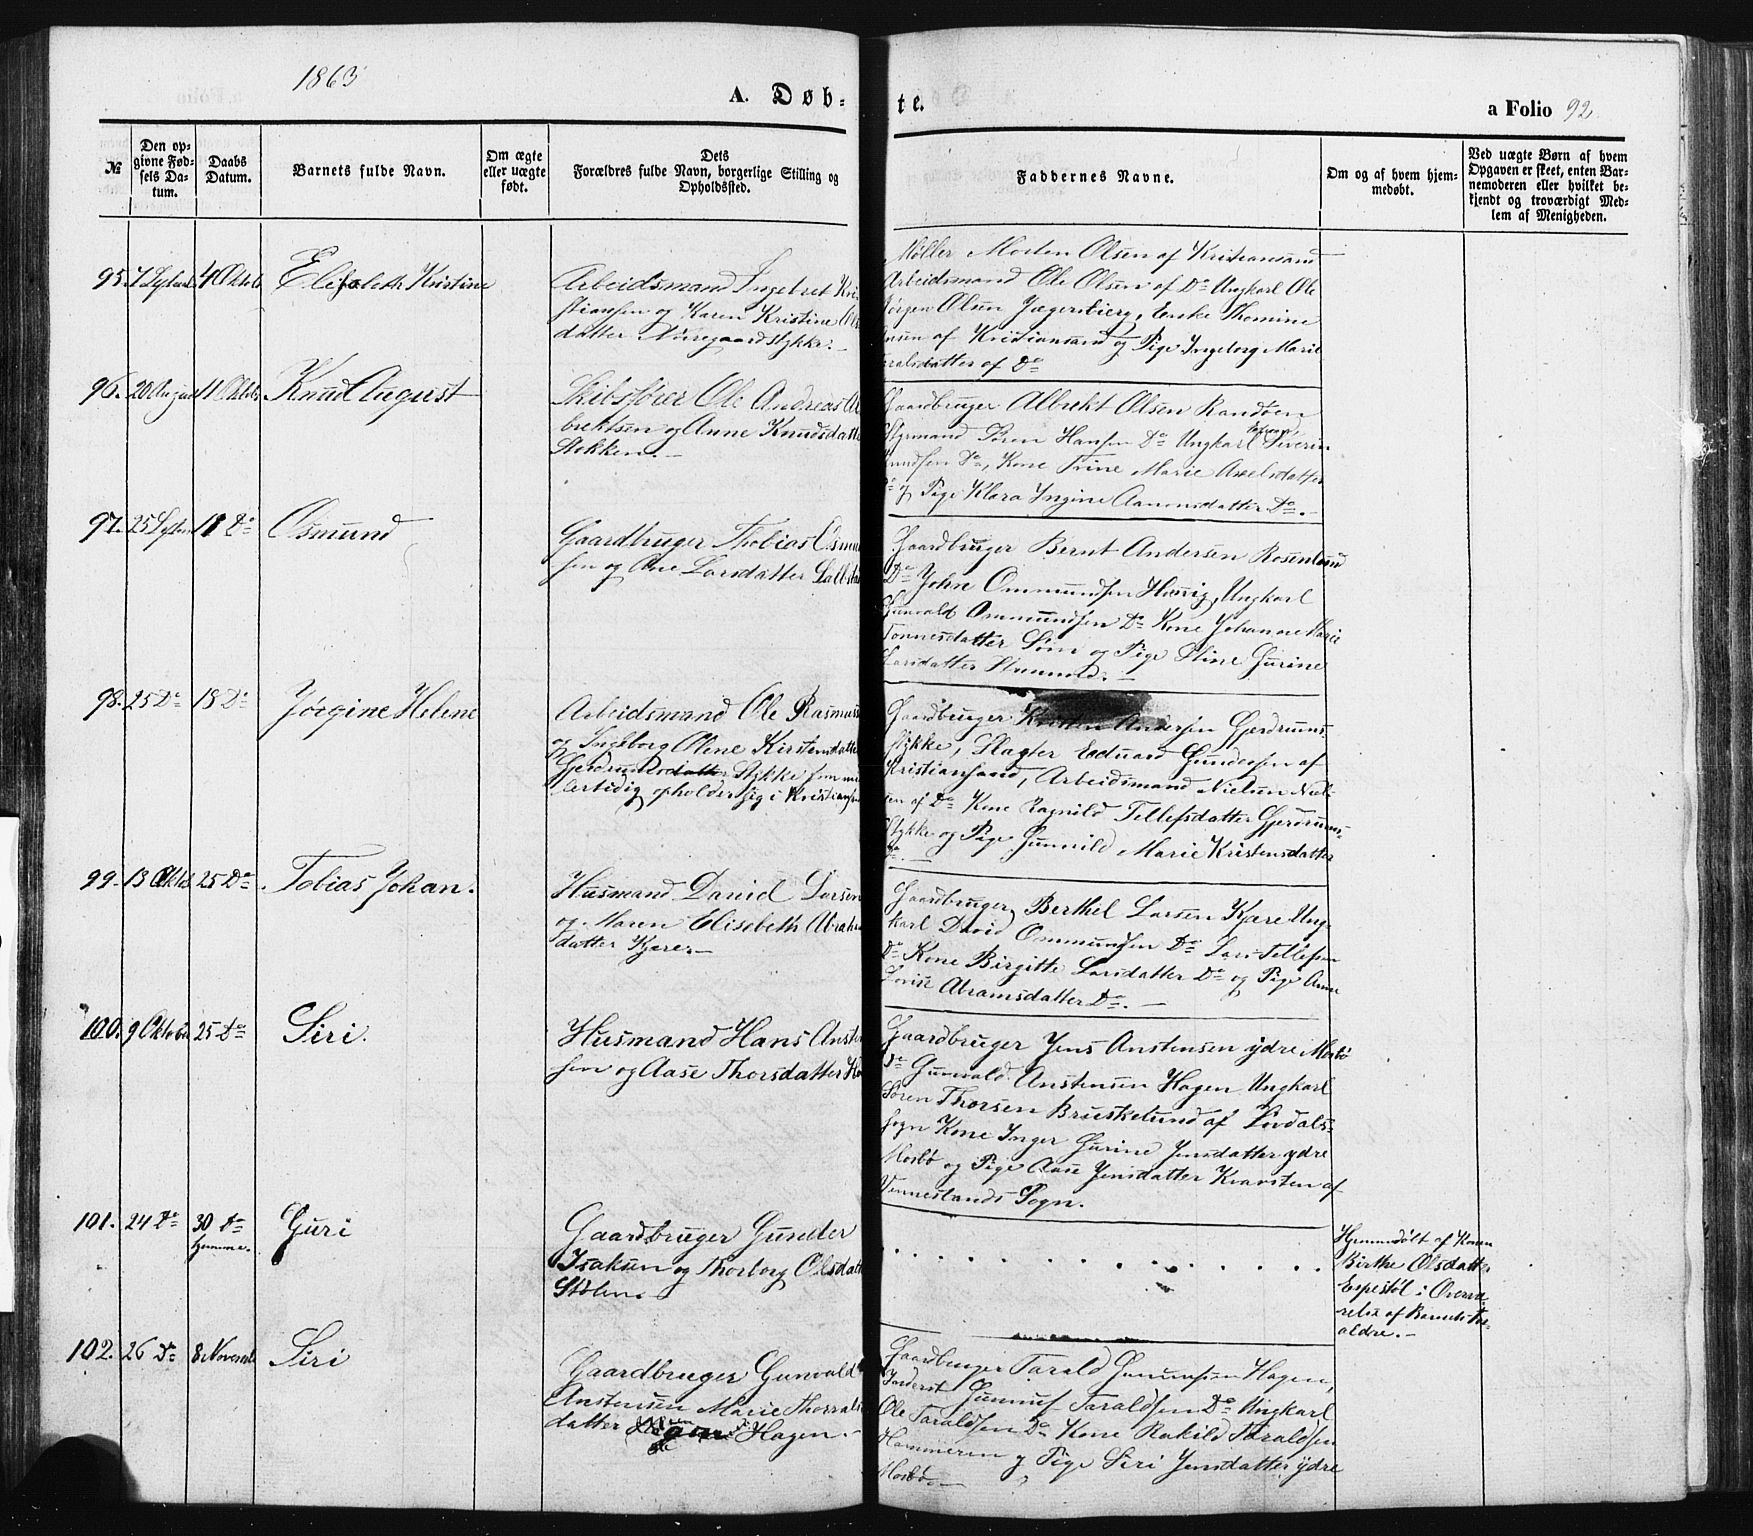 1863
A. Døb-
te.
a Folio 92
№
Den op-
givne Fød-
sels Da-
tum.
Daabs
Datum.
Barnets fulde Navn.
Om ægte
eller uægte
født.
Dets
Forældres fulde Navn, borgerlige Stilling og
Opholdssted.
Faddernes Navne.
Om og af hvem hjem-
medøbt.
Ved uægte Børn af hvem
Opgaven er skeet, enten Bar-
nemoderen eller hvilket be-
kjendt og troværdigt Med-
lem af Menigheden.
95. 7 Septemb 4 Oktob
Elisabeth Kristine
Arbeidsmand Ingebret Kri
stiansen og Karen Kristine Ols
datter Nørregaardstykke.-
Møller Morten Olsen af Kristiansand
Arbeidsmand Ole Olsen af Do Ungkarl Ole
Jørgen Olsen Jægersbierg, Enke Thomine
ensen af Kristiansand og Pige Ingeborg Marie
Taralsdatter af Do
96. 20 August 11 Oktob
Knud August
Skibsfører Ole Andreas Al
brektsen og Anne Knudsdatte
Stokken.-
Gaardbruger Albrekt Olsen Randøen
Styrmand Søren Hansen Do Ungkarl Severin
Knudsen Do, Kone Trine Marie Axelsdatter
Do og Pige Klara Ingine Aanonsdatter Do.-
97. 25 Septem 18 Do
Osmund
Gaardbruger Thobias Osmun
sen og Ane Larsdatter
Gaardbruger Bernt Andersen Rosenlund
Do John Ommundsen Hæsig, Ungkarl
Gunvald Ommundsen Do Kone Johanne Marie
Tønnesdatter Søm og Pige Stine Gurine
Larsdatter
98. 25 Do 18 Do
Jørgine Helene
Arbeidsmand Ole Rasmuss
og Ingeborg Olene Kirstensdatte
Gjerdrumsdatter Stykke som mi
lertidig opholder sig i Kristians
Gaardbruger Kristen Andersen Gjerdrums-
stykke, Slagter Edduard Gundersen af
Kristiansand, Arbeidsmand Nielsen Niel
sen af Do Kone Ragnild Tellefsdatter Gjerdrums-
stykke og Pige Gunnild Marie Kristensdatter
Do.-
99. 13 Oktob 25 Do.
Tobias Johan.
Husmand David Larsen
og Maren Elisebeth Abraha
datter Kjære.-
Gaardbruger Berthel Larsen Kjære Ung-
karl David Ommundsen Do Lars Tellefsen
Do Kone Birgitte Larsdatter Do og Pige Anne
Lovise Abramsdatter Do.-
100. 9 Oktober 25 Do
Siri.
Husmand Hans Ansten
sen og Aase Thorsdatter
Gaardbruger Jens Anstensen ydre Mosbø
Do Gunvald Anstensen Hagen Ungkarl
Søren Thorsen Bruskelund af
Sogn Kone Inger Gurine Jensdatter ydre
Mosbø og Pige Aase Jensdatter Kvarsten af
Venneslands Sogn.
101. 24 Do 30 Do
hjemme.
Guri
Gaardbruger Gunder
Isaksen og Thorborg Olsdatt
Stølen.
Hjemmedøbt af Konen
Birthe Olsdatter
Espestøl i Overvæ
relse af Barnets For-
ældre.-
102. 26 Do 8 Novemb
Siri
Gaardbruger Gunvald
Anstensen Marie Thorvalds
datter Hagen.-
Gaardbruger Tarald Gunnufsen Hagen,
Inderst Gunnuf Taraldsen Do Ungkarl
Ole Taraldsen Do Kone Rakild Taraldsen
Hommeren og Pige Siri Jensdatter ydre
Mosbø.-